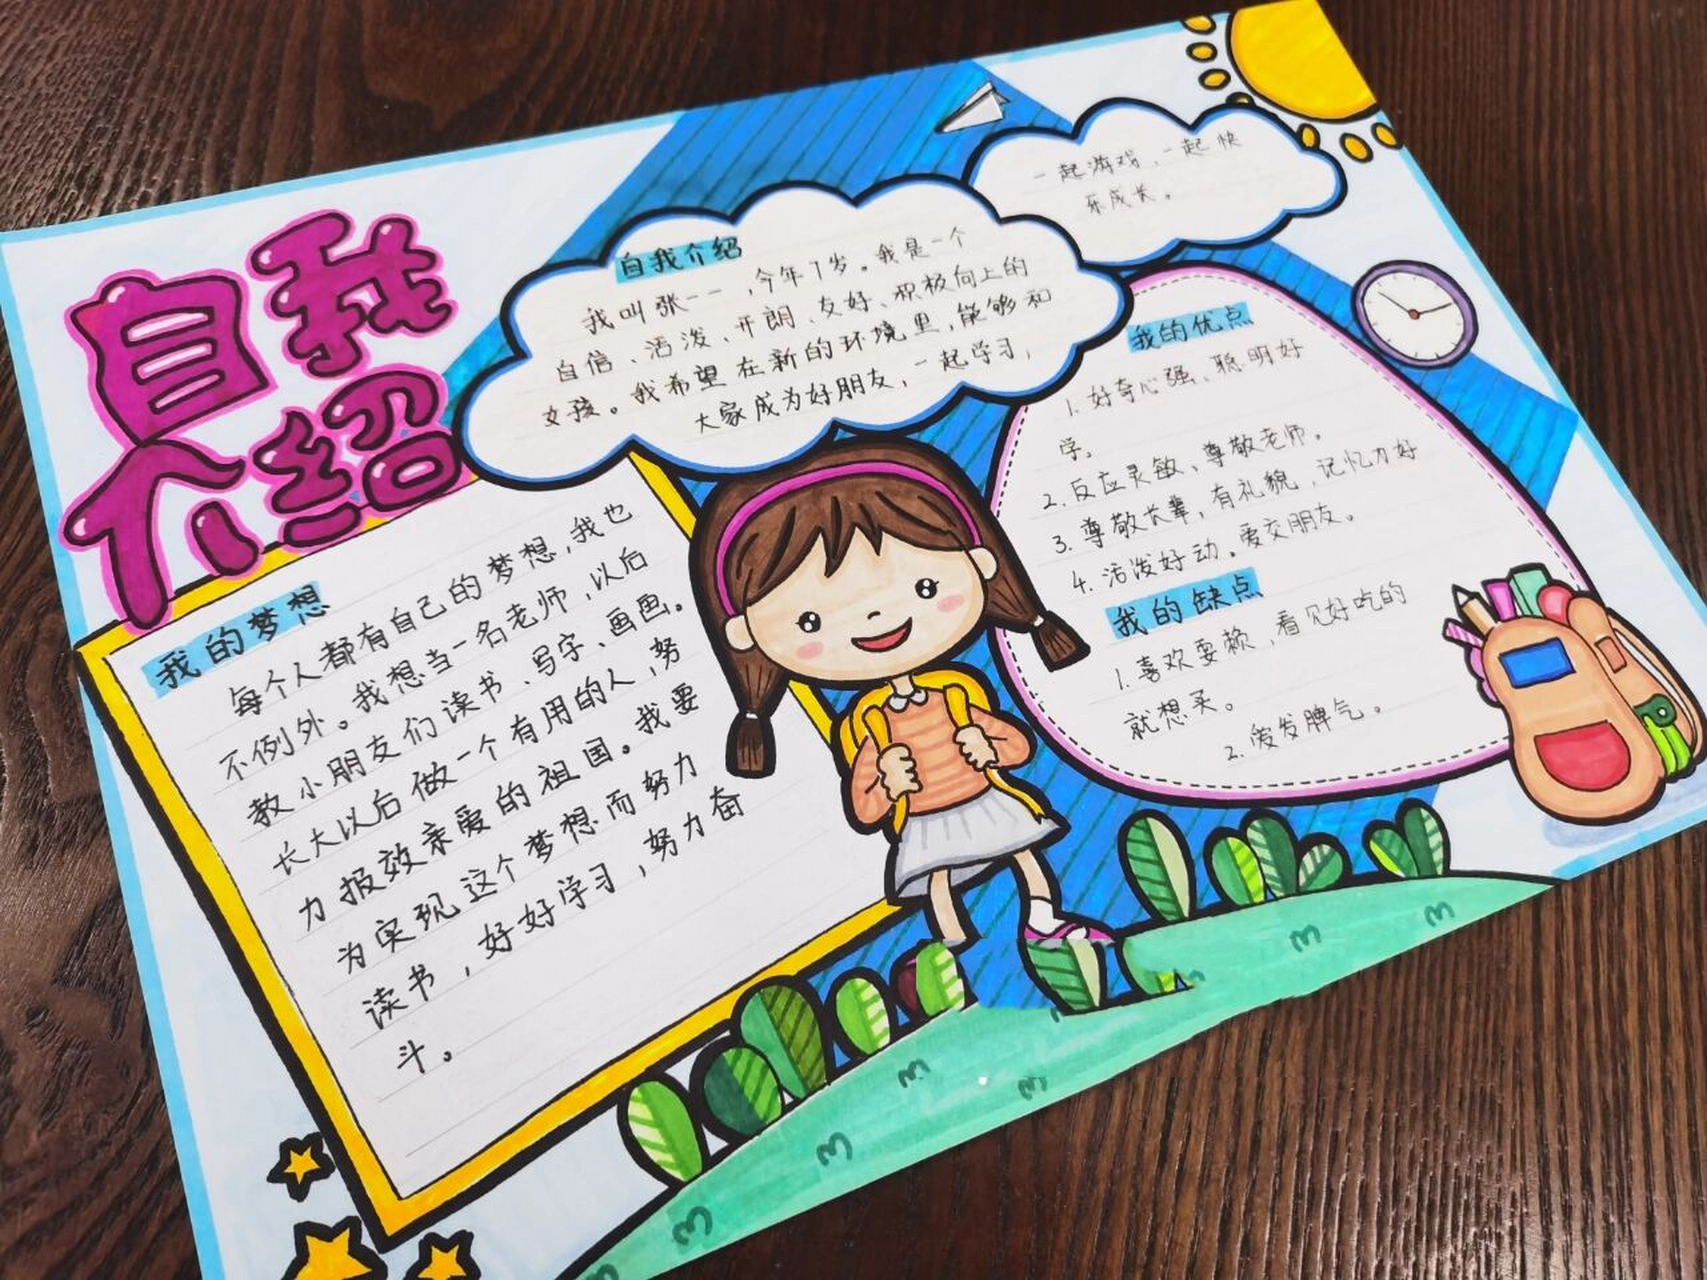 自我
介绍
自我介绍
我叫张一一，今年7岁。我是一个
自信、活泼、开朗、友好、积极向上的
女孩。我希望在新的环境里，能够和
大家成为好朋友，一起学习，
一起游戏，一起快
乐成长。
我的梦想
每个人都有自己的梦想，我也
不例外。我想当一名老师，以后
教小朋友们读书、写字、画画。
长大以后做一个有用的人，努
力报效亲爱的祖国。我要
为实现这个梦想而努力
读书，好好学习，努力奋
斗。
我的优点
1.好奇心强、聪明好
学。
2.反应灵敏、尊敬老师。
3.尊敬长辈，有礼貌，记忆力好
4.活泼好动。爱交朋友。
我的缺点
1.喜欢耍赖，看见好吃的
就想买。
2.爱发脾气。